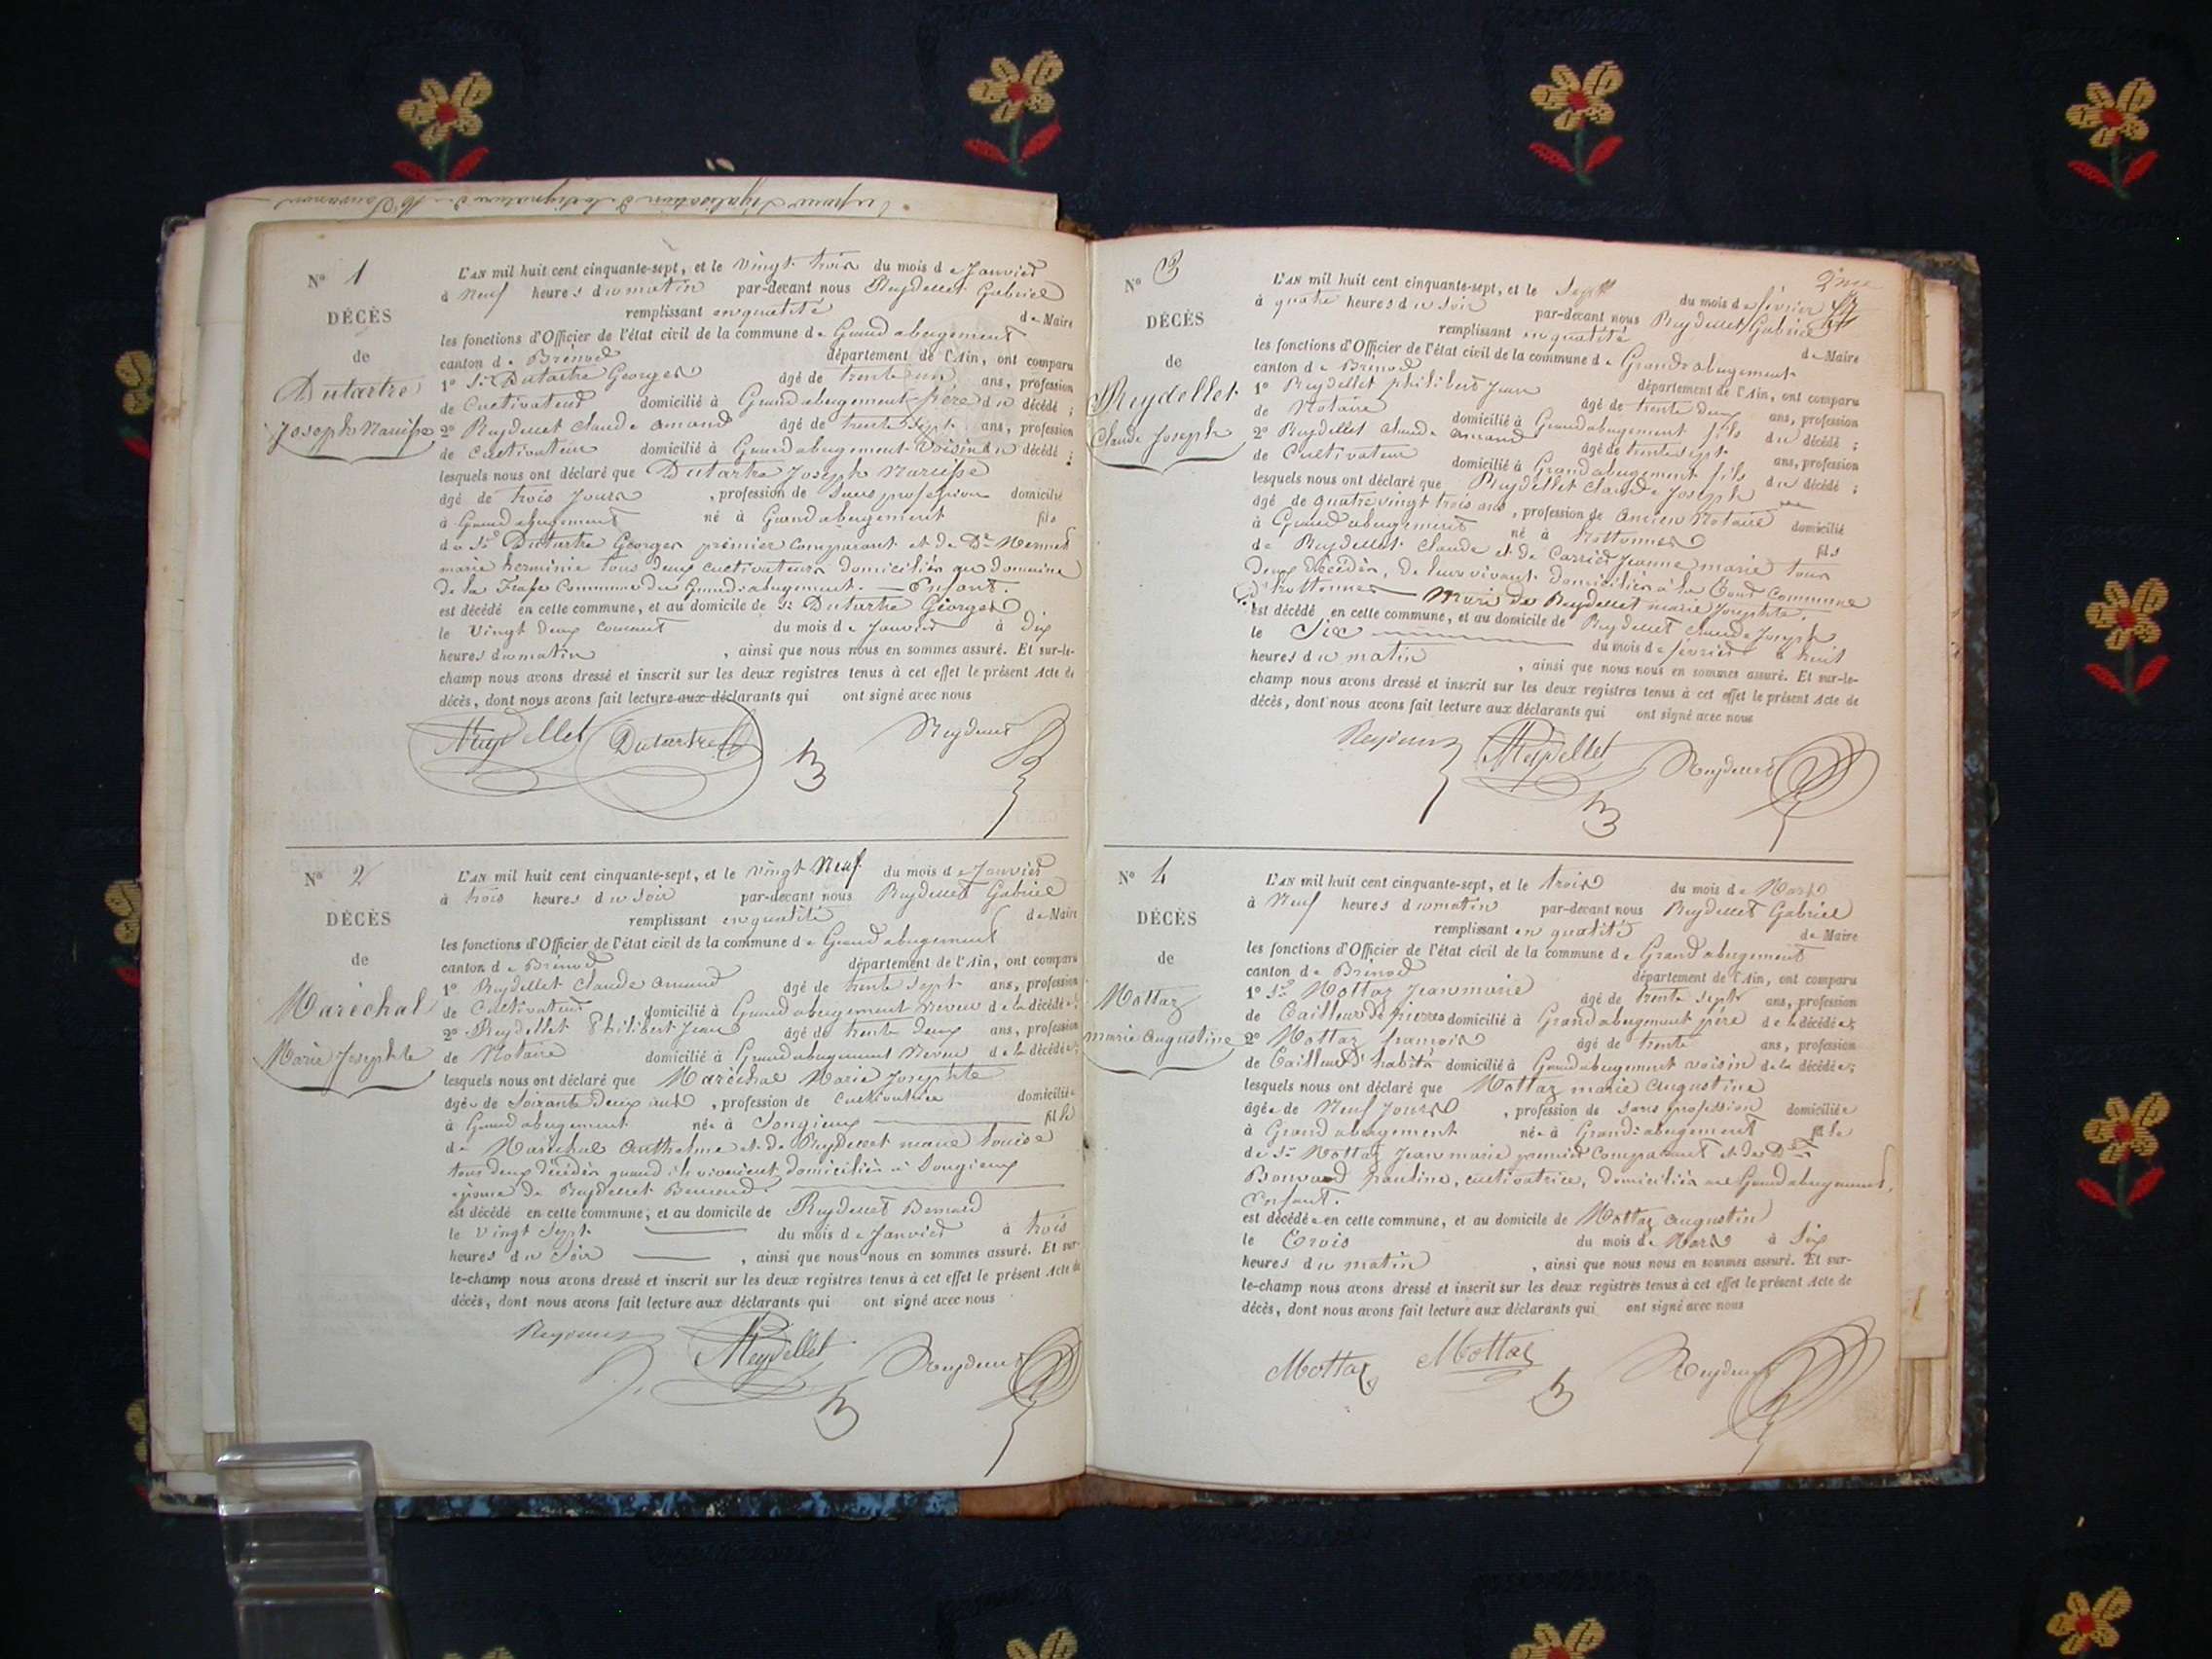 No 1
DÉCÈS
de
Dutartre
Joseph Narcisse
L'AN mil huit cent cinquante-sept, et le vingt trois du mois de Janvier
à neuf heures du matin par-devant nous Reydellet Gabriel
remplissant en qualité de Maire
les fonctions d'Officier de l'état civil de la commune de Grand abergement
canton de Brénod département de l'Ain, ont comparu
1o Sr Dutartre Georges âgé de trente un ans, profession
de Cultivateur domicilié à Grand abergement père du décédé ;
2o Reydellet Claude amand âgé de trente sept ans, profession
de Cultivateur domicilié à Grand abergement Voisin du décédé ;
lesquels nous ont déclaré que Dutartre Joseph Narcisse
âgé de trois Jours , profession de Sans profession domicilié
à Grand abergement né à Grand abergement fils
de Sr Dutartre Georges premier Comparant et de De
marie herminie tous deux cultivateurs domiciliés au domaine
de la Commune du Grand-abergement. — Enfant.
est décédé en cette commune, et au domicile de Sr Dutartre Georges
le Vingt deux Courant du mois de Janvier à dix
heures du matin , ainsi que nous nous en sommes assuré. Et sur-le-
champ nous avons dressé et inscrit sur les deux registres tenus à cet effet le présent Acte de
décès, dont nous avons fait lecture aux déclarants qui ont signé avec nous
Reydellet Dutartre Reydellet
No 2
DÉCÈS
de
Maréchal
Marie Josephte
L'AN mil huit cent cinquante-sept, et le vingt Neuf du mois de Janvier
à trois heures du soir par-devant nous Reydellet Gabriel
remplissant en qualité de Maire
les fonctions d'Officier de l'état civil de la commune de Grand abergement
canton de Brénod département de l'Ain, ont comparu
1o Reydellet Claude amand âgé de trente sept ans, profession
de Cultivateur domicilié à Grand abergement Neveu de la décédée ;
2o Reydellet Philibert Jean âgé de trente deux ans, profession
de Notaire domicilié à Grand abergement Neveu de la décédée ;
lesquels nous ont déclaré que Maréchal Marie Josephte
âgée de Soixante deux ans , profession de Cultivatrice domiciliée
à Grand abergement née à Songieux fille
de Maréchal Anthelme et de Reydellet marie louise
tous deux décédés quand ils vivaient domiciliés à Songieux
épouse de Reydellet Bernard.
est décédé en cette commune, et au domicile de Reydellet Bernard
le Vingt Sept du mois de Janvier à trois
heures du Soir , ainsi que nous nous en sommes assuré. Et sur-
le-champ nous avons dressé et inscrit sur les deux registres tenus à cet effet le présent Acte de
décès, dont nous avons fait lecture aux déclarants qui ont signé avec nous
Reydellet Reydellet
No 3
DÉCÈS
de
Reydellet
Claude Joseph
2me
L'AN mil huit cent cinquante-sept, et le Sept du mois de février
à quatre heures du Soir par-devant nous Reydellet Gabriel
remplissant en qualité de Maire
les fonctions d'Officier de l'état civil de la commune de Grand abergement
canton de Brénod département de l'Ain, ont comparu
1o Reydellet philibert Jean âgé de trente deux ans, profession
de Notaire domicilié à Grand abergement fils du décédé ;
2o Reydellet Claude amand âgé de trente sept ans, profession
de Cultivateur domicilié à Grand abergement fils du décédé ;
lesquels nous ont déclaré que Reydellet Claude Joseph
âgé de quatre vingt trois ans , profession de ancien Notaire domicilié
à Grand abergement né à hottonnes fils
de Reydellet Claude et de Carrier Jeanne marie tous
deux décédés, de leurs vivant domiciliés à la Commune
d'hottonnes Mari de Reydellet marie Josephte.
est décédé en cette commune, et au domicile de Reydellet Claude Joseph
le Six du mois de février à huit
heures du matin , ainsi que nous nous en sommes assuré. Et sur-le-
champ nous avons dressé et inscrit sur les deux registres tenus à cet effet le présent Acte de
décès, dont nous avons fait lecture aux déclarants qui ont signé avec nous
Reydellet Reydellet
No 4
DÉCÈS
de
Mottaz
marie augustine
L'AN mil huit cent cinquante-sept, et le trois du mois de Mars
à Neuf heures du matin par-devant nous Reydellet Gabriel
remplissant en qualité de Maire
les fonctions d'Officier de l'état civil de la commune de Grand abergement
canton de Brénod département de l'Ain, ont comparu
1o Sr Mottaz Jean marie âgé de trente sept ans, profession
de Tailleur de pierres domicilié à Grand abergement père de la décédée ;
2o Mottaz françois âgé de trente ans, profession
de Tailleur d'habits domicilié à Grand abergement voisin de la décédée ;
lesquels nous ont déclaré que Mottaz marie augustine
âgée de Neuf Jours , profession de sans profession domiciliée
à Grand abergement née à Grand-abergement fille
de Sr Mottaz Jean marie premier Comparant et de De
pauline, cultivatrice, domiciliés au Grand abergement,
Enfant.
est décédée en cette commune, et au domicile de Mottaz augustin
le Trois du mois de Mars à Six
heures du matin , ainsi que nous nous en sommes assuré. Et sur-
le-champ nous avons dressé et inscrit sur les deux registres tenus à cet effet le présent Acte de
décès, dont nous avons fait lecture aux déclarants qui ont signé avec nous
Mottaz Mottaz Reydellet